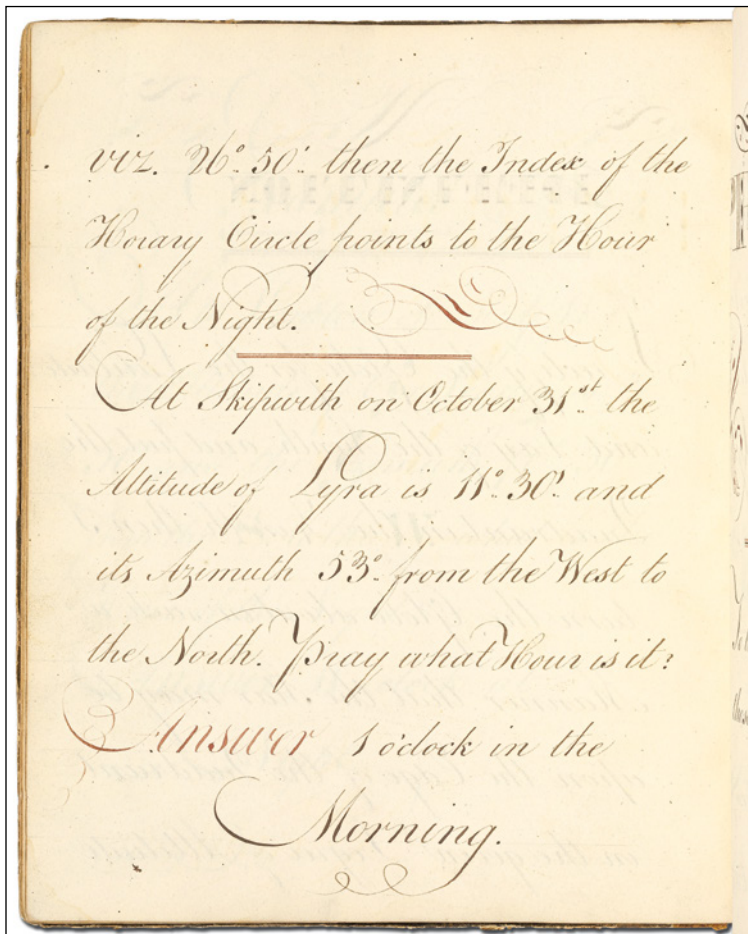 viz. 26°. 50'. then the Index of the
Horary Circle points to the Hour
of the Night.
At Skipwith on October 31st. the
Altitude of Lyra is 11°. 30'. and
its Azimuth 53°. from the West to
the North. Pray what Hour is it?
Answer 1 o'clock in the
Morning.